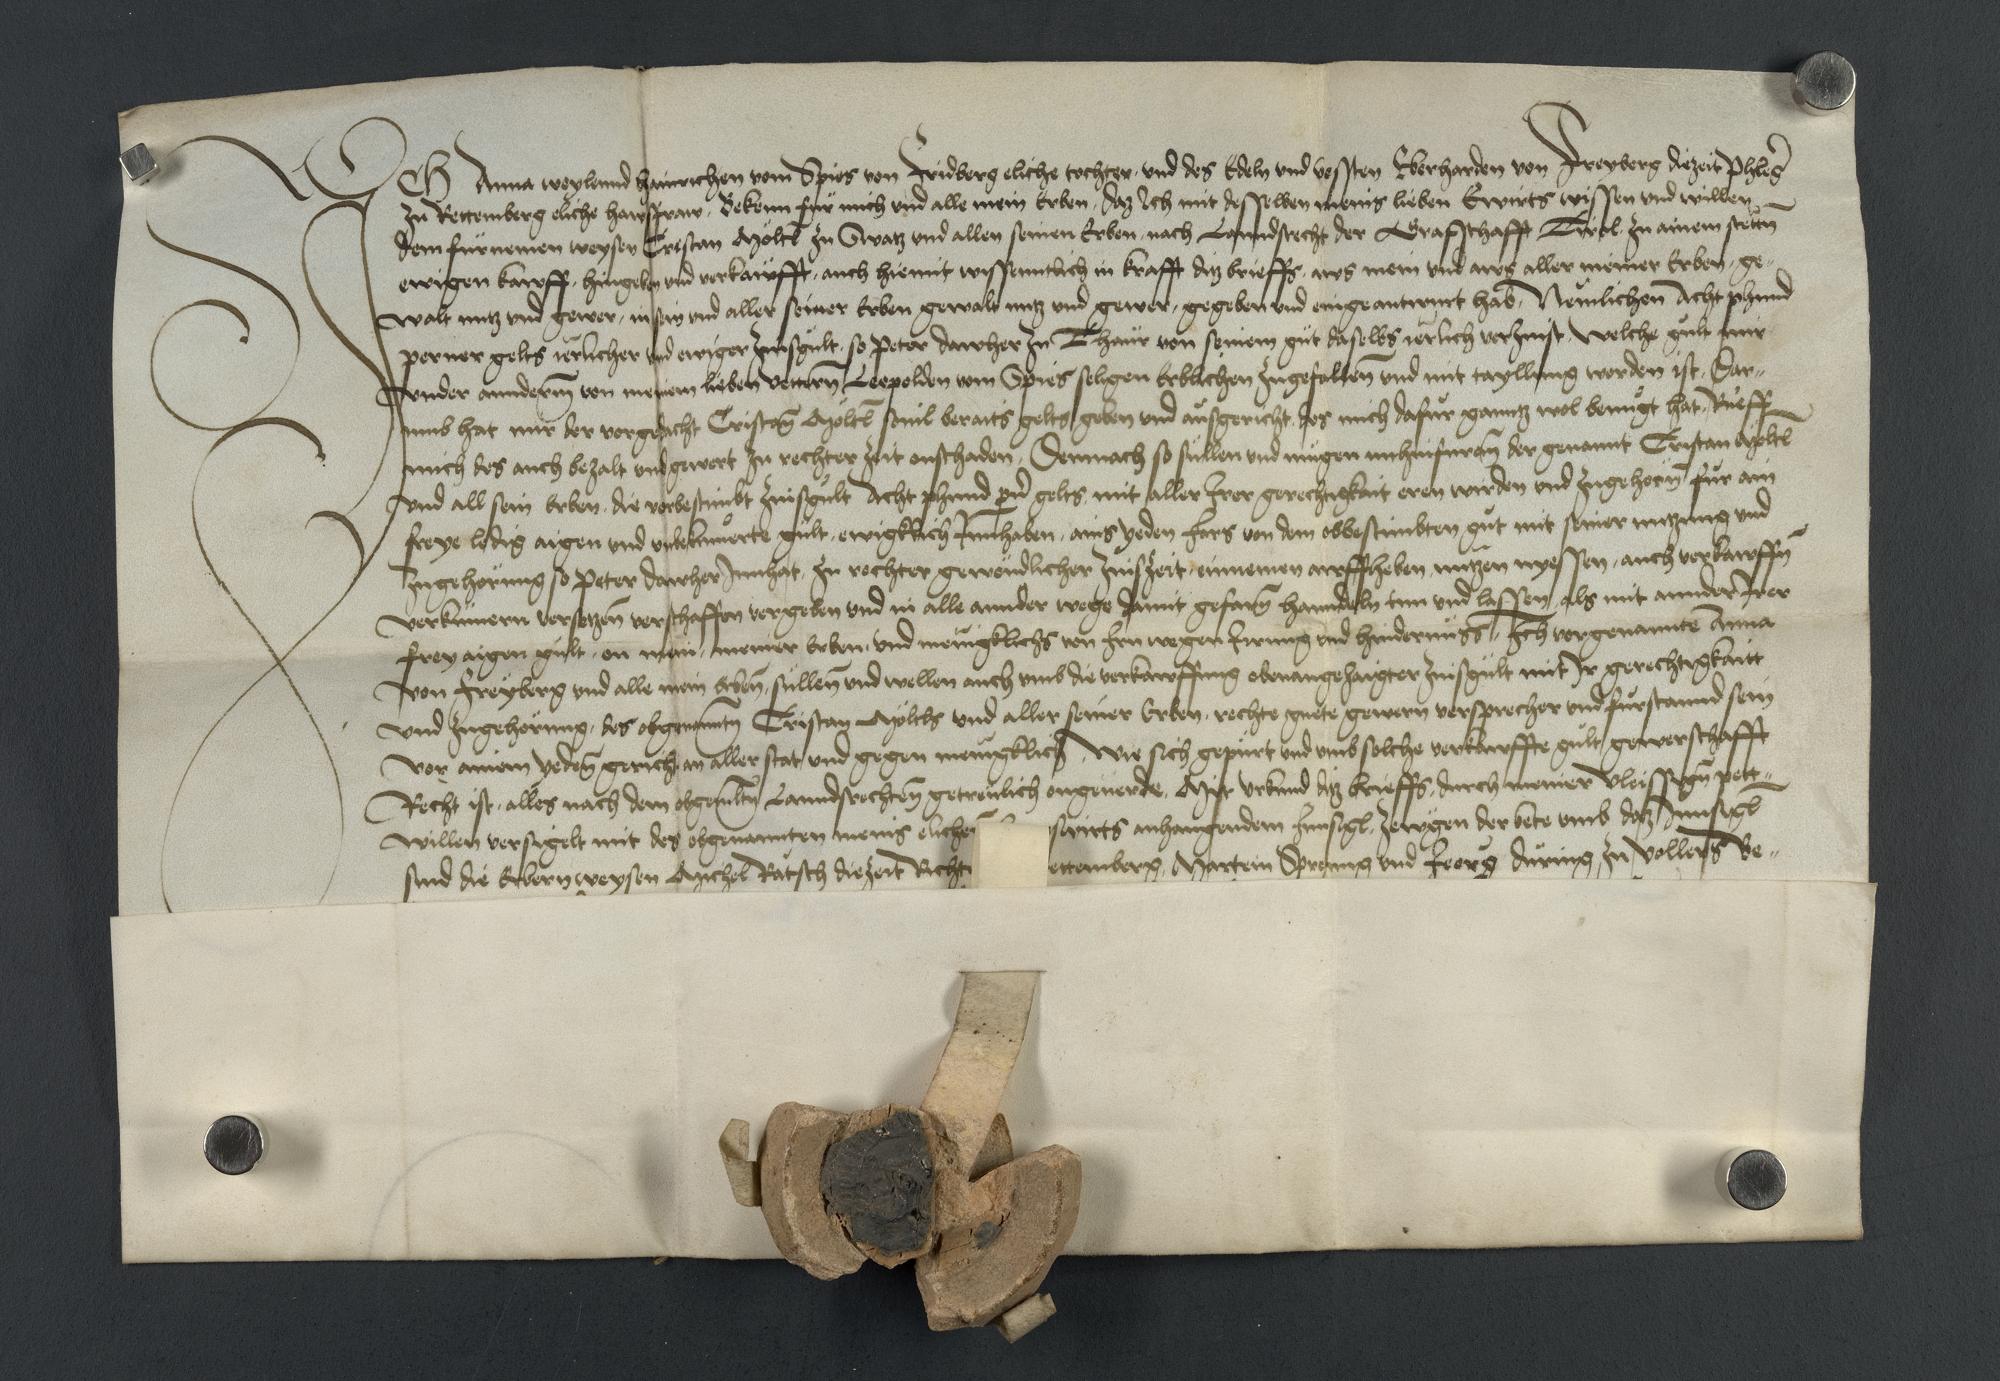 Ich Anna weylennd Hainrichen vom Spies von Fridberg eliche tochter, und des Edeln und vessten Eberharden von Freyberg diezeit Phleg̃
zu Rettemberg eliche hawsfraw, Bekenn für mich und alle mein Erben, daz Ich mit desselben meins lieben Ewirts wissen und willen
dem fürnemen weysen Cristan Mölt̃l zu Swatz und allen seinen Erben, nach Lanndsrecht der Grafschafft Tirol, zu ainem stet̃n
ewigen kawff, hingeben und verkaufft, auch hiemit wissenntlich in krafft ditz brieffs, aws mein und aws aller meiner Erben, ge-
walt nutz und gewer, in sein und aller seiner Erben gewalt nutz und gewer, gegeben und eingeantwurt hab, Nemlichen Acht phund
perner gelts jerlicher und ewiger Zinsgült, so Peter dawher zu Thaur von seinem gut daselbs jerlich verzinst, welche gült mir
under annderm̃ von meinem lieben vettern̄ Leopolden vom Spies seligen Erblichen zugefallen̄ und mit tayllung worden ist, Dar-
umb hat mir der vorgedacht Cristan̄ Mölt̃l sovil beraits gelts geben und ausgericht, des mich dafür ganntz wol benügt hat, Rueff
mich des auch bezalt und gewert zu rechter zeit onschaden, Demnach so süllen und mügen nuhinfuran̄ der genannt Cristan Mölt̃l
und all sein Erben, die vorbestimbt Zinsgült Acht phund pn̄ gelts, mit aller Irer gerechtigkait eren wirden und zugehörn̄ für ain
freye ledig aigen und unbekumerte gült, ewigklich Innhaben, ains yeden Jars von dem obbestimbten gut mit seiner nutzung und
zugehörung so Peter dawher Innhat, zu rechter gewondlicher Zinszeit, einnemen auffheben, nutzen nyessen, auch verkawffn̄
verkumern versetzen̄ verschaffen vergeben und in alle annder wege damit gefarn̄ hanndeln tun und lassen, als mit annder Irer
frey aigen gült, on mein, meiner Erben, und menigklichs von Irn wegen Irrung und hindernüss, Ich vorgenannte Anna
von Freyberg und alle mein Erben̄, süllen̄ und wellen auch umb die verkawffung obenangezaigter Zinsgült mit Ir gerechtigkaitt
und zugehörung, des obgenanntn̄ Cristan Mölt̃ls und aller seiner Erben, rechte guete gewern versprecher und fürstannd sein
vor ainem yeden̄ gericht, an aller stat und gegen menigklich, wie sich gepürt und umb solche verkawffte gült gewerschafft
Recht ist, alles nach dem obgemeltn̄ Lanndsrechten̄ getreulich ongeverde, Mit urkund ditz brieffs, durch meiner vleissign̄ pett-
willen versigelt mit des obgenannten meins elichen̄ swirts anhangendem Innsigl, Zewgen der bete umb daz Innsigl
sind die Erbern weysen Michel Ratsch diezeit Richt ettemberg, Martein Spreng und Jeorg düring zu Vollers Be-